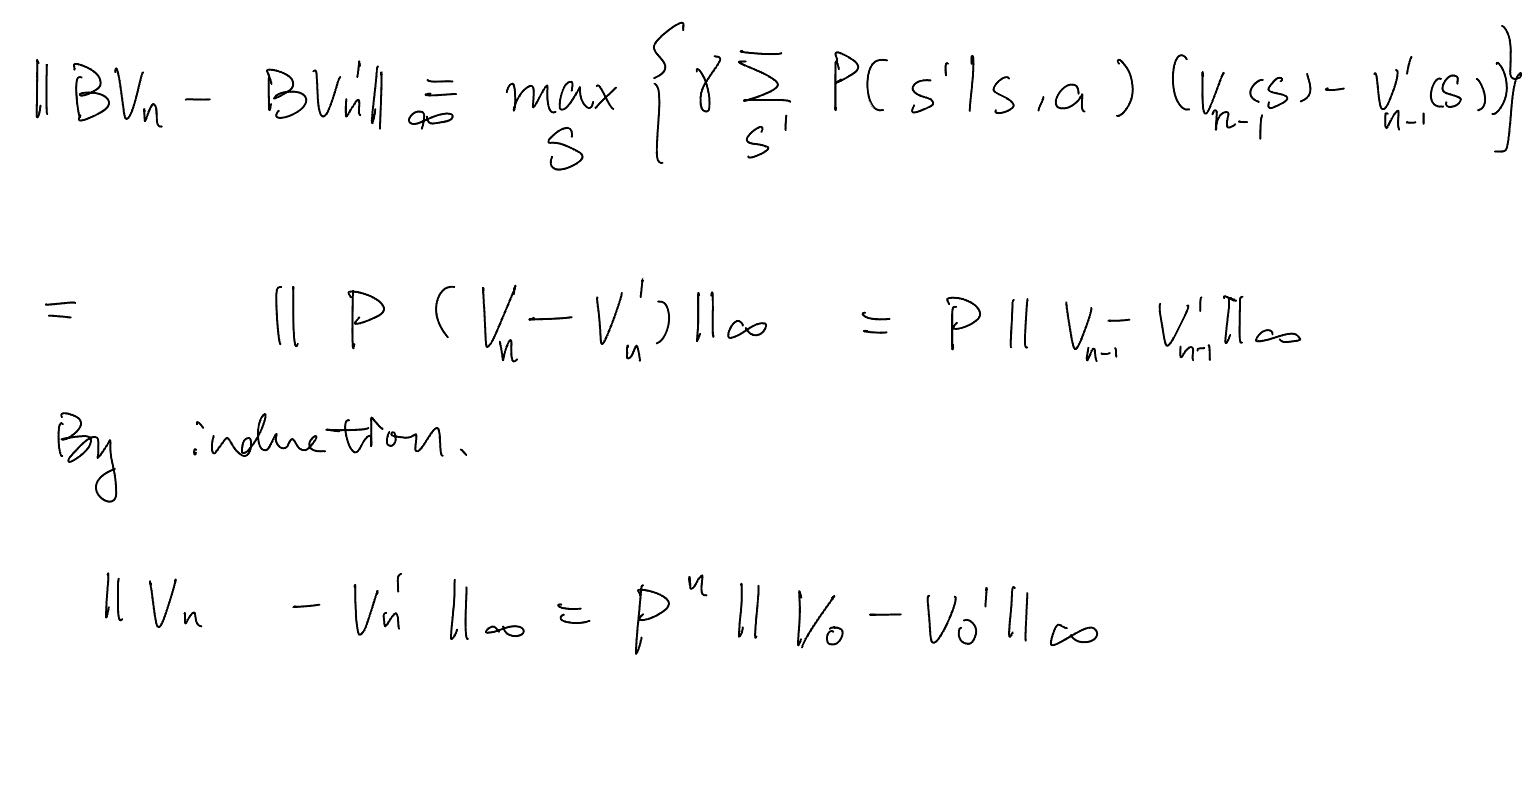 ‖BVₙ - BVₙ'‖∞ = max_s { γ Σ_s' P(s'|s,a) (Vₙ₋₁(s) - V'ₙ₋₁(s)) }
= ‖ P (Vₙ - Vₙ') ‖∞ = P ‖ Vₙ₋₁ - V'ₙ₋₁ ‖∞
By induction.
‖ Vₙ - Vₙ' ‖∞ = Pⁿ ‖ V₀ - V₀' ‖∞